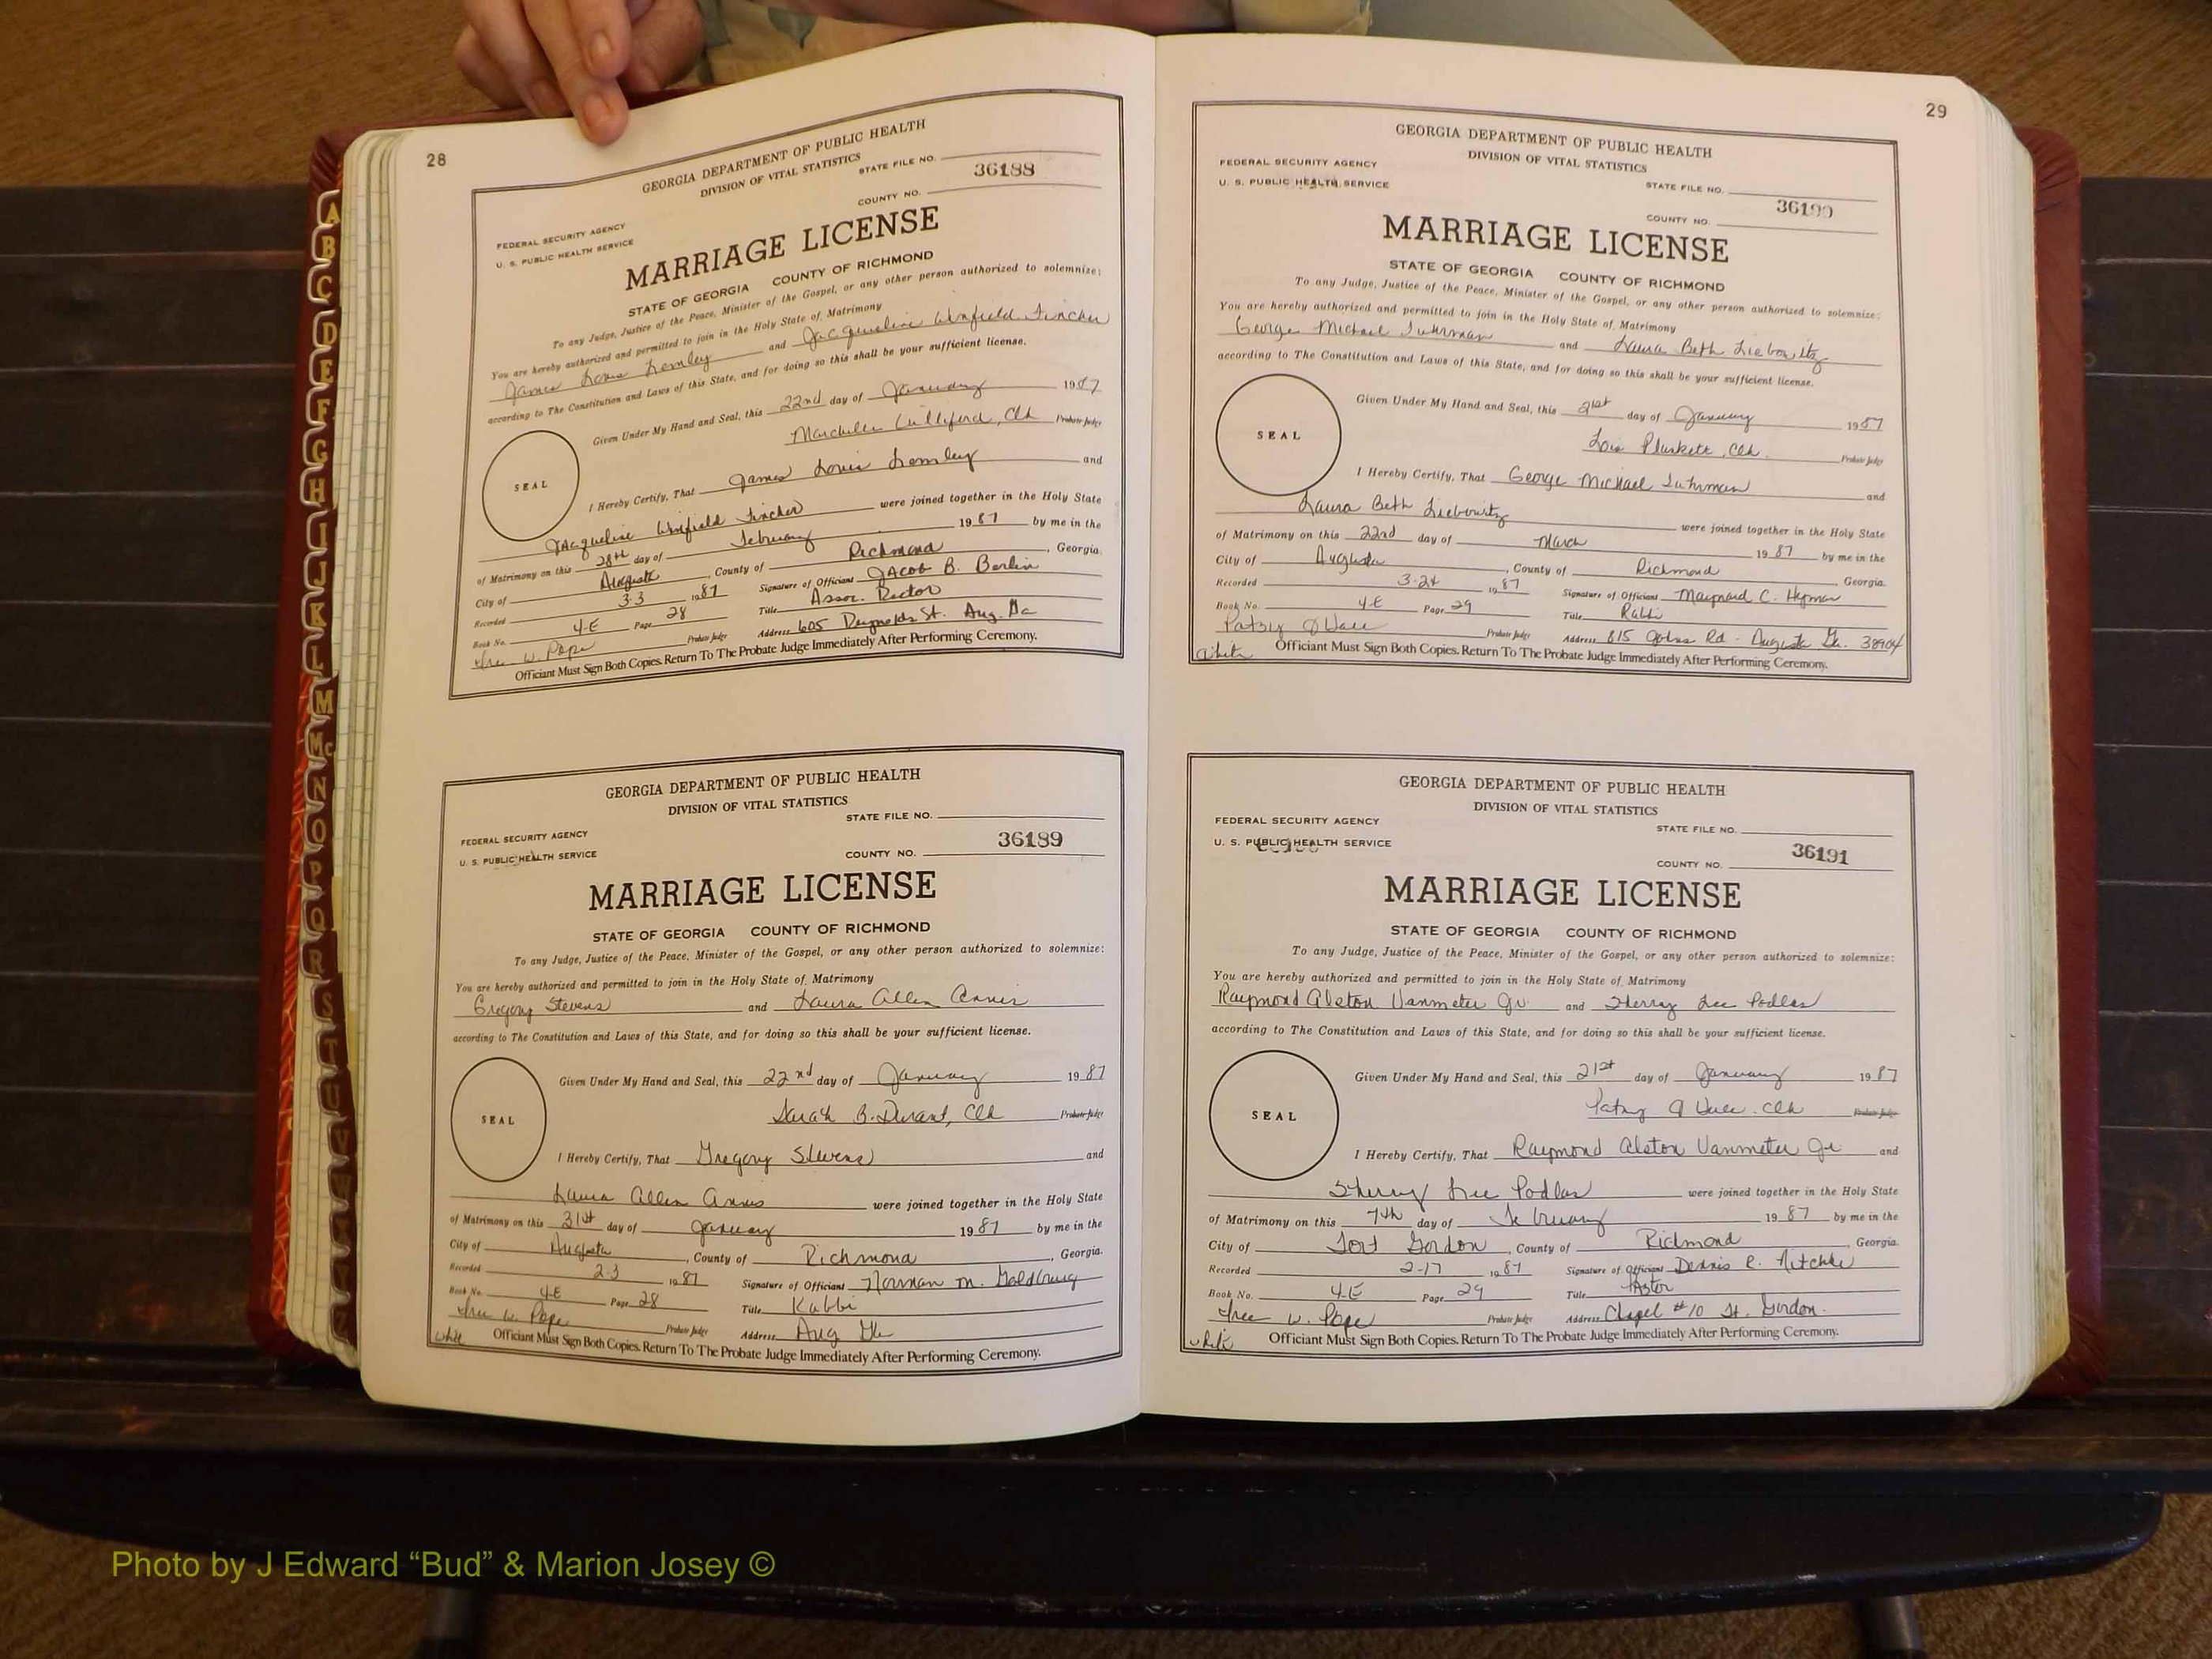 28
GEORGIA DEPARTMENT OF PUBLIC HEALTH
DIVISION OF VITAL STATISTICS
STATE FILE NO.
36188
COUNTY NO.
FEDERAL SECURITY AGENCY
U. S. PUBLIC HEALTH SERVICE
MARRIAGE LICENSE
STATE OF GEORGIA COUNTY OF RICHMOND
To any Judge, Justice of the Peace, Minister of the Gospel, or any other person authorized to solemnize:
You are hereby authorized and permitted to join in the Holy State of Matrimony
James Louis Lemley and Jacqueline Winfield Fincher
according to The Constitution and Laws of this State, and for doing so this shall be your sufficient license.
Given Under My Hand and Seal, this 22nd day of January 1987
Clk Probate Judge
SEAL
I Hereby Certify, That James Louis Lemley and
Jacqueline Winfield Fincher were joined together in the Holy State
of Matrimony on this 28th day of February 1987 by me in the
City of Augusta, County of Richmond, Georgia.
Recorded 3-3 1987 Signature of Officiant Jacob B. Berlin
Book No. 4-E Page 28 Title Assoc. Rector
W. Pope Probate Judge Address 605 Reynolds St. Aug. Ga
Officiant Must Sign Both Copies. Return To The Probate Judge Immediately After Performing Ceremony.
GEORGIA DEPARTMENT OF PUBLIC HEALTH
DIVISION OF VITAL STATISTICS
STATE FILE NO.
FEDERAL SECURITY AGENCY
U. S. PUBLIC HEALTH SERVICE
36189
COUNTY NO.
MARRIAGE LICENSE
STATE OF GEORGIA COUNTY OF RICHMOND
To any Judge, Justice of the Peace, Minister of the Gospel, or any other person authorized to solemnize:
You are hereby authorized and permitted to join in the Holy State of Matrimony
Gregory Stevens and Laura Allen Annis
according to The Constitution and Laws of this State, and for doing so this shall be your sufficient license.
Given Under My Hand and Seal, this 22nd day of January 1987
Sarah B. Durant, Clk Probate Judge
SEAL
I Hereby Certify, That Gregory Stevens and
Laura Allen Annis were joined together in the Holy State
of Matrimony on this 31st day of January 1987 by me in the
City of Augusta, County of Richmond, Georgia.
Recorded 2-3 1987 Signature of Officiant Norman M. Goldburg
Book No. 4E Page 28 Title Rabbi
W. Pope Probate Judge Address Aug Ga
white Officiant Must Sign Both Copies. Return To The Probate Judge Immediately After Performing Ceremony.
29
GEORGIA DEPARTMENT OF PUBLIC HEALTH
DIVISION OF VITAL STATISTICS
FEDERAL SECURITY AGENCY
U. S. PUBLIC HEALTH SERVICE
STATE FILE NO.
36190
COUNTY NO.
MARRIAGE LICENSE
STATE OF GEORGIA COUNTY OF RICHMOND
To any Judge, Justice of the Peace, Minister of the Gospel, or any other person authorized to solemnize:
You are hereby authorized and permitted to join in the Holy State of Matrimony
George Michael Fuhrman and Laura Beth Liebowitz
according to The Constitution and Laws of this State, and for doing so this shall be your sufficient license.
Given Under My Hand and Seal, this 21st day of January 1987
Lois Plunkett, Clk. Probate Judge
SEAL
I Hereby Certify, That George Michael Fuhrman and
Laura Beth Liebowitz were joined together in the Holy State
of Matrimony on this 22nd day of March 1987 by me in the
City of Augusta, County of Richmond, Georgia.
Recorded 3-24 1987 Signature of Officiant Maynard C. Hyman
Book No. 4-E Page 29 Title Rabbi
Patsy Probate Judge Address 815 Rd. Augusta Ga.
white Officiant Must Sign Both Copies. Return To The Probate Judge Immediately After Performing Ceremony.
GEORGIA DEPARTMENT OF PUBLIC HEALTH
DIVISION OF VITAL STATISTICS
FEDERAL SECURITY AGENCY
U. S. PUBLIC HEALTH SERVICE
STATE FILE NO.
36191
COUNTY NO.
MARRIAGE LICENSE
STATE OF GEORGIA COUNTY OF RICHMOND
To any Judge, Justice of the Peace, Minister of the Gospel, or any other person authorized to solemnize:
You are hereby authorized and permitted to join in the Holy State of Matrimony
Raymond Alston Vanmeter Jr. and Sherry Lee Podlas
according to The Constitution and Laws of this State, and for doing so this shall be your sufficient license.
Given Under My Hand and Seal, this 21st day of January 1987
Patsy Clk Probate Judge
SEAL
I Hereby Certify, That Raymond Alston Vanmeter Jr and
Sherry Lee Podlas were joined together in the Holy State
of Matrimony on this 7th day of February 1987 by me in the
City of Fort Gordon, County of Richmond, Georgia.
Recorded 2-17 1987 Signature of Officiant Dennis R. Nitchke
Book No. 4-E Page 29 Title Pastor
W. Pope Probate Judge Address Chapel #10 Ft. Gordon.
white Officiant Must Sign Both Copies. Return To The Probate Judge Immediately After Performing Ceremony.
A
B
C
D
E
F
G
H
I
J
K
L
M
Mc
N
O
P
Q
R
S
T
U
V
Photo by J Edward “Bud” & Marion Josey ©